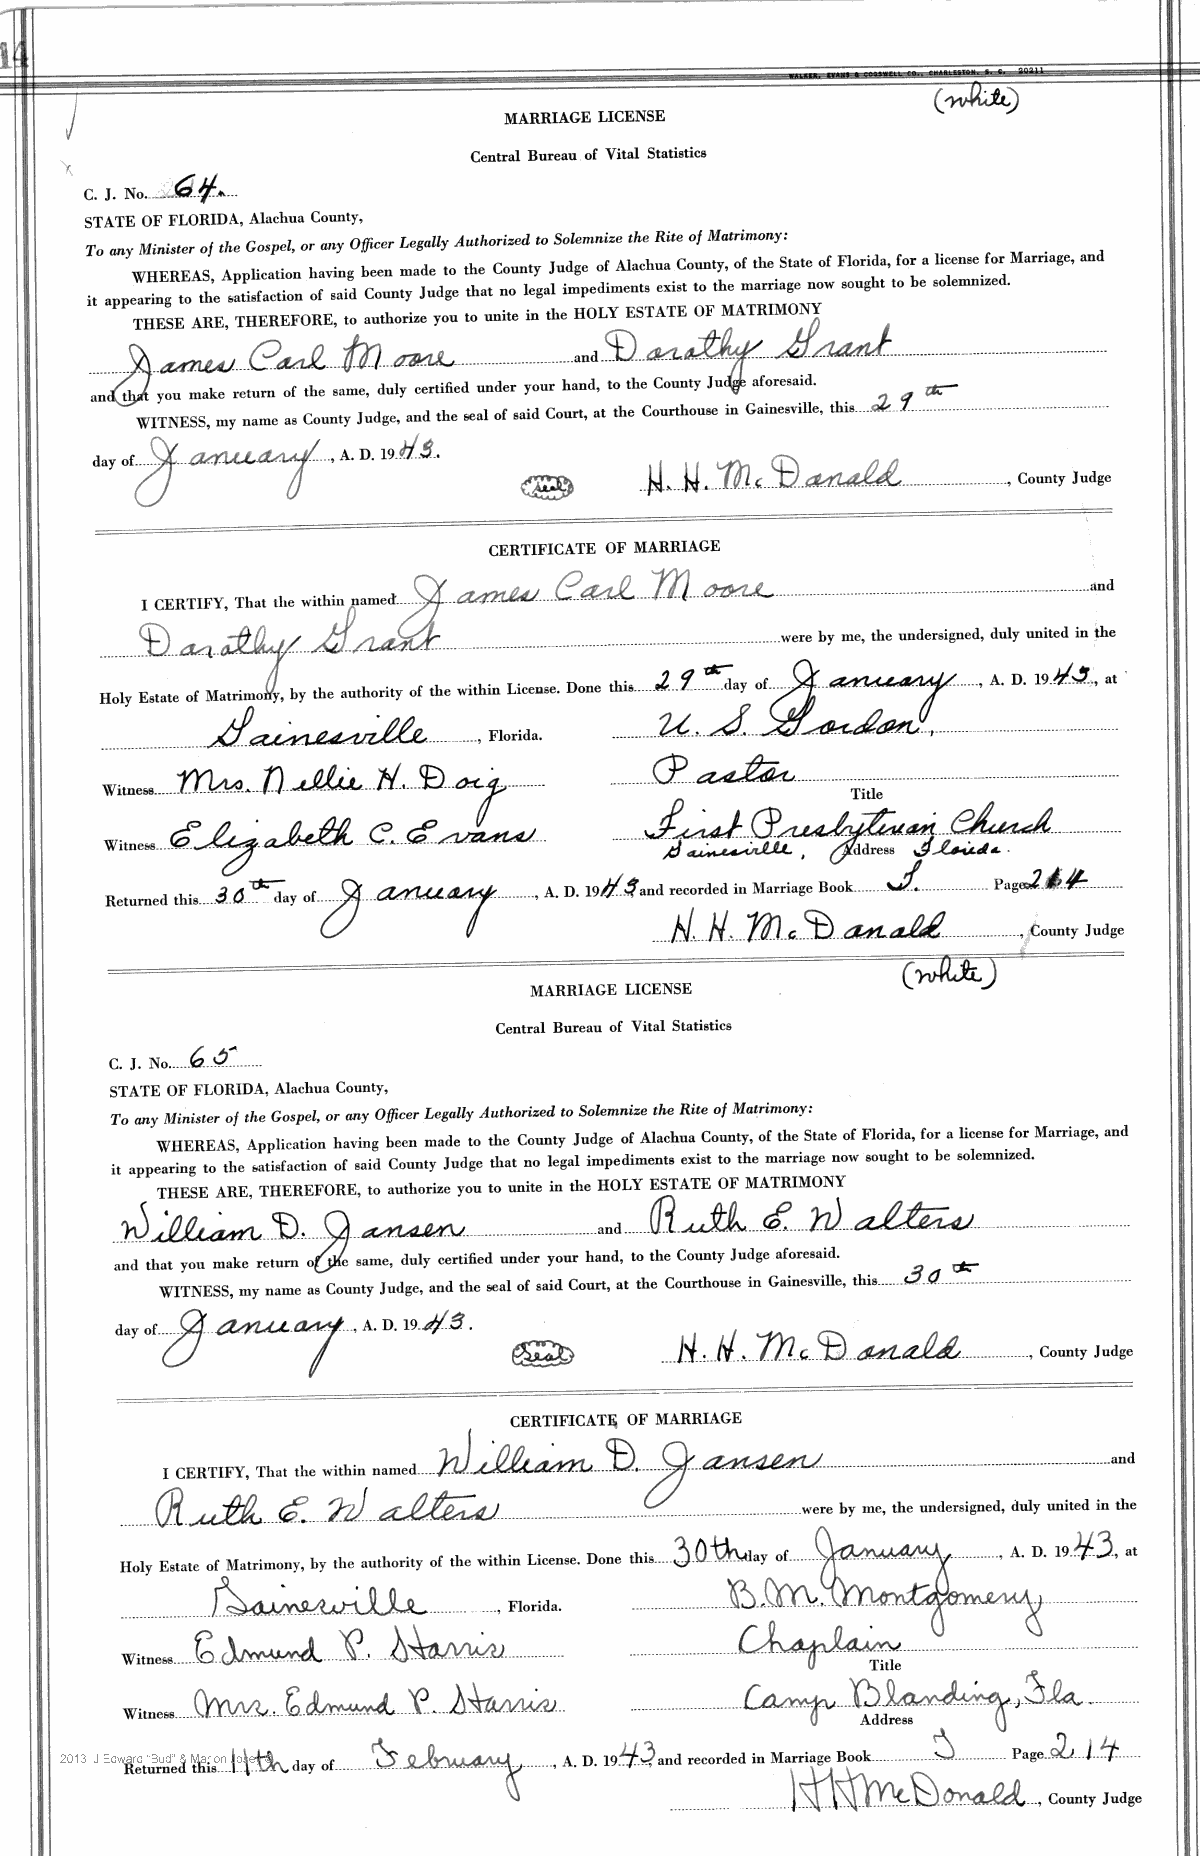 14
WALKER, EVANS & COGSWELL CO., CHARLESTON, S. C. 20211
(white)
MARRIAGE LICENSE
Central Bureau of Vital Statistics
C. J. No. 64.
STATE OF FLORIDA, Alachua County,
To any Minister of the Gospel, or any Officer Legally Authorized to Solemnize the Rite of Matrimony:
WHEREAS, Application having been made to the County Judge of Alachua County, of the State of Florida, for a license for Marriage, and
it appearing to the satisfaction of said County Judge that no legal impediments exist to the marriage now sought to be solemnized.
THESE ARE, THEREFORE, to authorize you to unite in the HOLY ESTATE OF MATRIMONY
James Carl Moore and Dorothy Grant
and that you make return of the same, duly certified under your hand, to the County Judge aforesaid.
WITNESS, my name as County Judge, and the seal of said Court, at the Courthouse in Gainesville, this 29th
day of January, A. D. 1943.
Seal H. H. McDonald, County Judge
CERTIFICATE OF MARRIAGE
I CERTIFY, That the within named James Carl Moore and
Dorothy Grant were by me, the undersigned, duly united in the
Holy Estate of Matrimony, by the authority of the within License. Done this 29th day of January, A. D. 1943, at
Gainesville, Florida. U. S. Gordon,
Witness Mrs. Nellie H. Doig Pastor
Title
Witness Elizabeth C. Evans First Presbyterian Church
Gainesville, Address Florida.
Returned this 30th day of January, A. D. 1943 and recorded in Marriage Book T. Page 214
H. H. McDonald, County Judge
(white)
MARRIAGE LICENSE
Central Bureau of Vital Statistics
C. J. No. 65
STATE OF FLORIDA, Alachua County,
To any Minister of the Gospel, or any Officer Legally Authorized to Solemnize the Rite of Matrimony:
WHEREAS, Application having been made to the County Judge of Alachua County, of the State of Florida, for a license for Marriage, and
it appearing to the satisfaction of said County Judge that no legal impediments exist to the marriage now sought to be solemnized.
THESE ARE, THEREFORE, to authorize you to unite in the HOLY ESTATE OF MATRIMONY
William D. Jansen and Ruth E. Walters
and that you make return of the same, duly certified under your hand, to the County Judge aforesaid.
WITNESS, my name as County Judge, and the seal of said Court, at the Courthouse in Gainesville, this 30th
day of January, A. D. 1943.
Seal H. H. McDonald, County Judge
CERTIFICATE OF MARRIAGE
I CERTIFY, That the within named William D. Jansen and
Ruth E. Walters were by me, the undersigned, duly united in the
Holy Estate of Matrimony, by the authority of the within License. Done this 30th day of January, A. D. 1943, at
Gainesville, Florida. B. M. Montgomery
Witness Edmund P. Starris Chaplain
Title
Witness Mrs. Edmund P. Starris Camp Blanding, Fla.
Address
2013 J Edward "Bud" & Marion
Returned this 11th day of February, A. D. 1943, and recorded in Marriage Book T Page 214
H H McDonald, County Judge